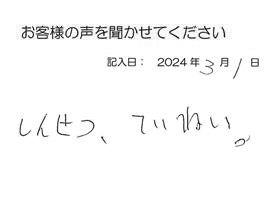 お客様の声を聞かせてください
記入日： 2024年3月1日
しんせつ、ていねい。